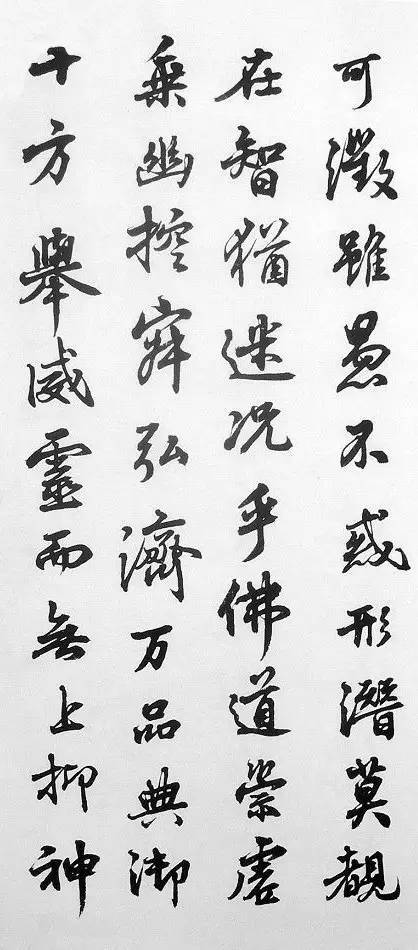 可徵雖愚不惑形潛莫覩
在智猶迷况乎佛道崇虛
乗幽控寂弘濟万品典御
十方舉威靈而無上抑神